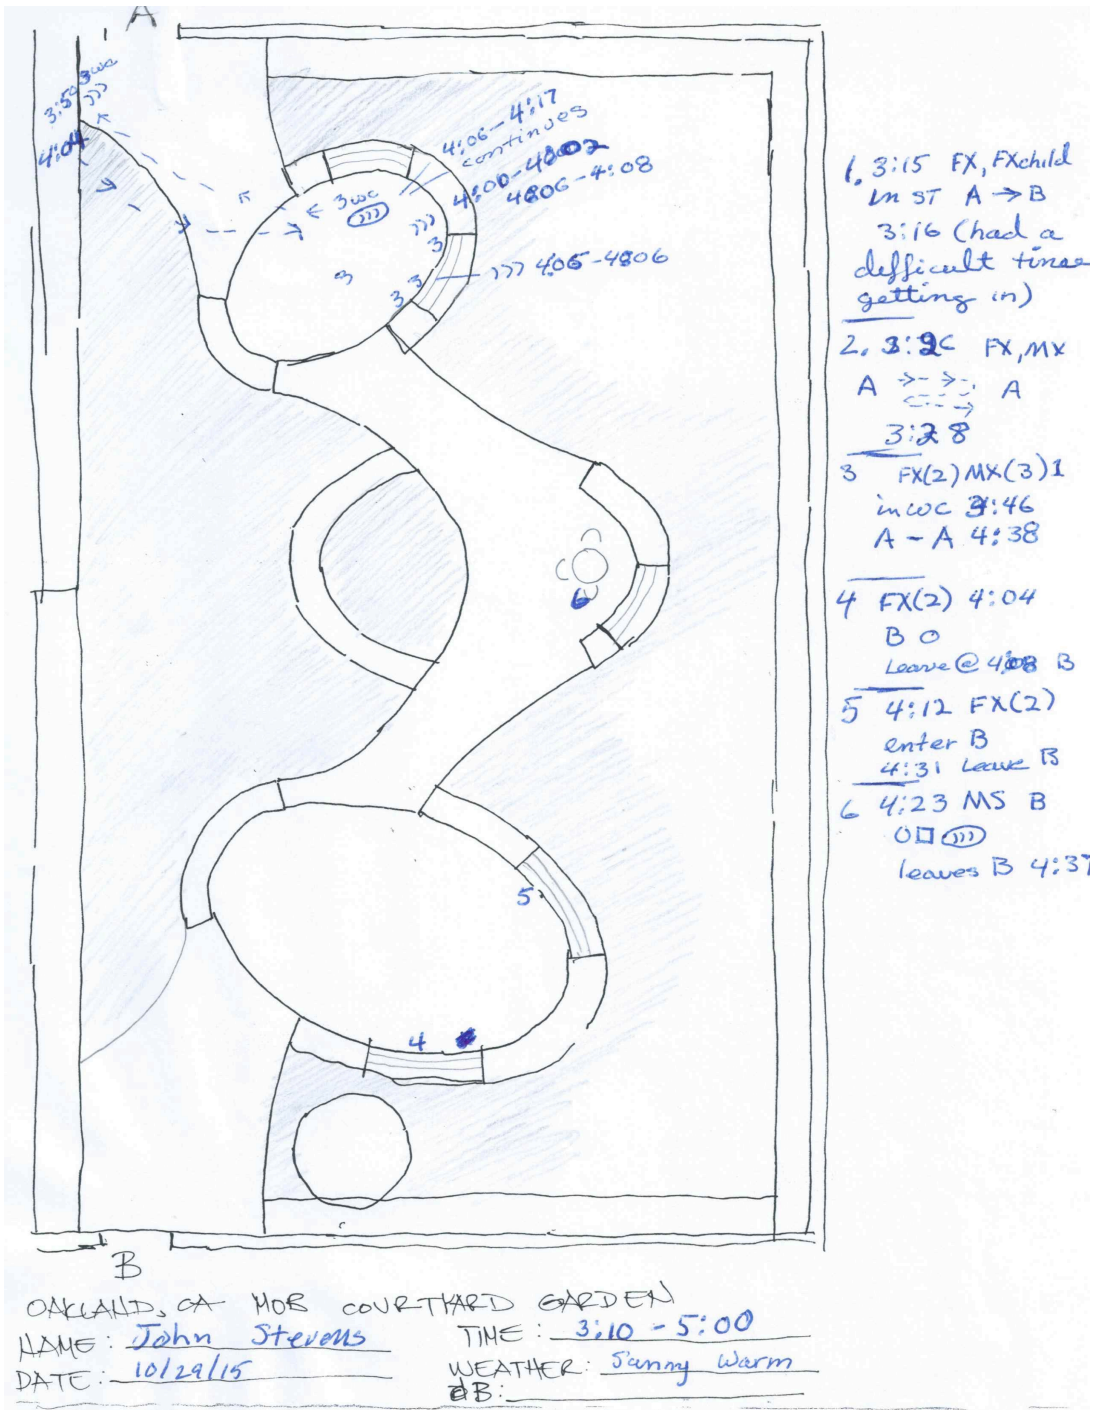 A
3:50 3wc
)))
4:04
4:06-4:17
continues
4:00-4:02
4:06-4:08
3wc
)))
)))
3
))) 4:05-4:06
3
3
3
6
5
4
B
1. 3:15 FX, FXchild
in ST A → B
3:16 (had a
defficult time
getting in)
2. FX, MX
A A
3:28
3 FX(2) MX(3) 1
in wc 3:46
A - A 4:38
4 FX(2) 4:04
B O
Leave @ 4:08 B
5 4:12 FX(2)
enter B
4:31 Leave B
6 4:23 MS B
O□ )))
leaves B 4:37
OAKLAND, CA MOB COURTYARD GARDEN
NAME: John Stevens TIME: 3:10 - 5:00
DATE: 10/29/15 WEATHER: Sunny Warm
dB: